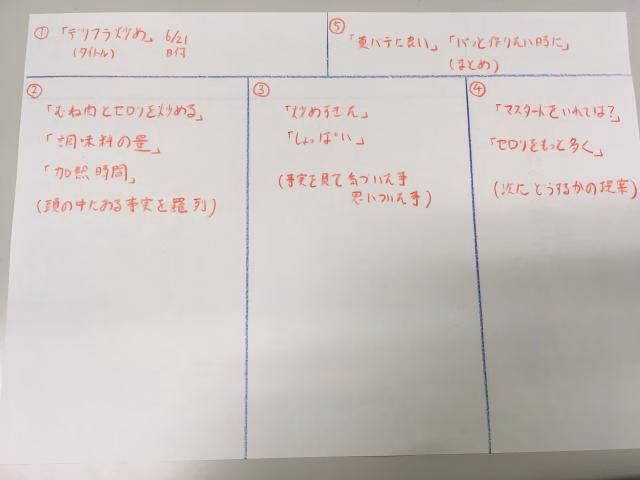 ① 「デリフラ炒め」 6/21
(タイトル) 日付
⑤
「夏バテに良い」 「パッと作りたい時に」
(まとめ)
②
「むね肉とセロリを炒める」
「調味料の量」
「加熱時間」
(頭の中にある事実を羅列)
③
「炒めすぎん」
「しょっぱい」
(事実を見て気づいた事
思いついた事)
④
「マスタードをいれては?」
「セロリをもっと多く」
(次にどうするかの提案)